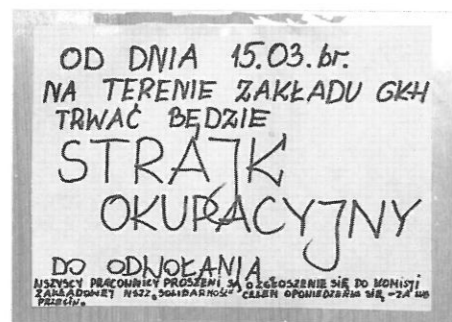 OD DNIA 15.03. br.
NA TERENIE ZAKŁADU GKH
TRWAĆ BĘDZIE
STRAJK
OKUPACYJNY
DO ODWOŁANIA
WSZYSCY PRACOWNICY PROSZENI SĄ O ZGŁOSZENIE SIĘ DO KOMISJI
ZAKŁADOWEJ NSZZ „SOLIDARNOŚĆ" CELEM OPOWIEDZENIA SIĘ -ZA LUB
PRZECIW.